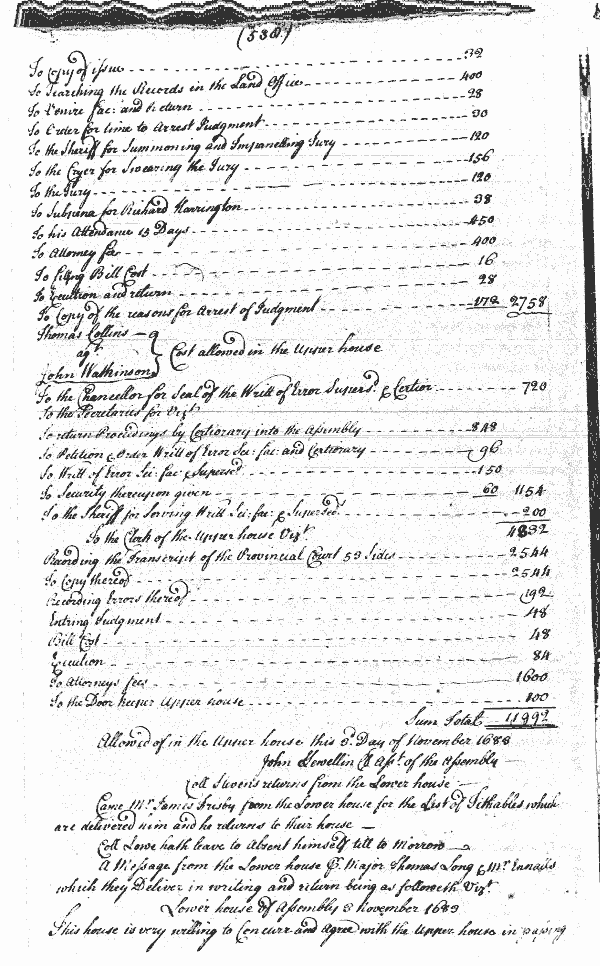 (538)
To Copy of issue 32
To Searching the Records in the Land Office 400
To Venire fac: and Return 28
To Order for time to Arrest Judgment 30
To the Sheriff for Summoning and Impanelling Jury 120
To the Cryer for Swearing the Jury 156
To the Jury 120
To Subpena for Richard Harrington 38
To his Attendance 15 Days 450
To Attorney fee 400
To Filing Bill Cost 16
To Execution and return 28
To Copy of the reasons for Arrest of Judgment 172 2758
Thomas Collins
agt
John Wathinson
Cost allowed in the Upper house
To the Chancellor for Seal of the Writt of Error Supersd. & Certior 720
To the Secretarius for Vizt
To return Proceedings by Certiorary into the Assembly 848
To Petition & Order Writt of Error Sci: fac: and Certiorary 96
To Writt of Error Sci: fac: & Supersed 150
To Security thereupon given 60 1154
To the Sheriff for Serving Writt Sci: fac: & Supersed 200
To the Clerk of the Upper house Vizt 4832
Recording the Transcript of the Provincial Court 53 Sides 2544
To Copy thereof 2544
Recording Errors thereof 192
Entring Judgment 48
Bill Cost 48
Execution 84
To Attorneys fees 1600
To the Door keeper Upper house 100
Sum Total 11992
Allowed of in the Upper house this 3d. Day of November 1683
John Llewellin Cl Asst. of the Assembly
Coll Stevens returns from the Lower house
Came Mr. James Frisby from the Lower house for the List of Tithables which
are delivered him and he returns to their house
Coll Lowe hath leave to Absent himself till to Morrow
A Message from the Lower house P. Major Thomas Long & Mr. Ennalls
which they Deliver in writing and return being as followeth Vizt.
Lower house of Assembly 3 November 1683
This house is very willing to Concurr and Agree with the Upper house in passing